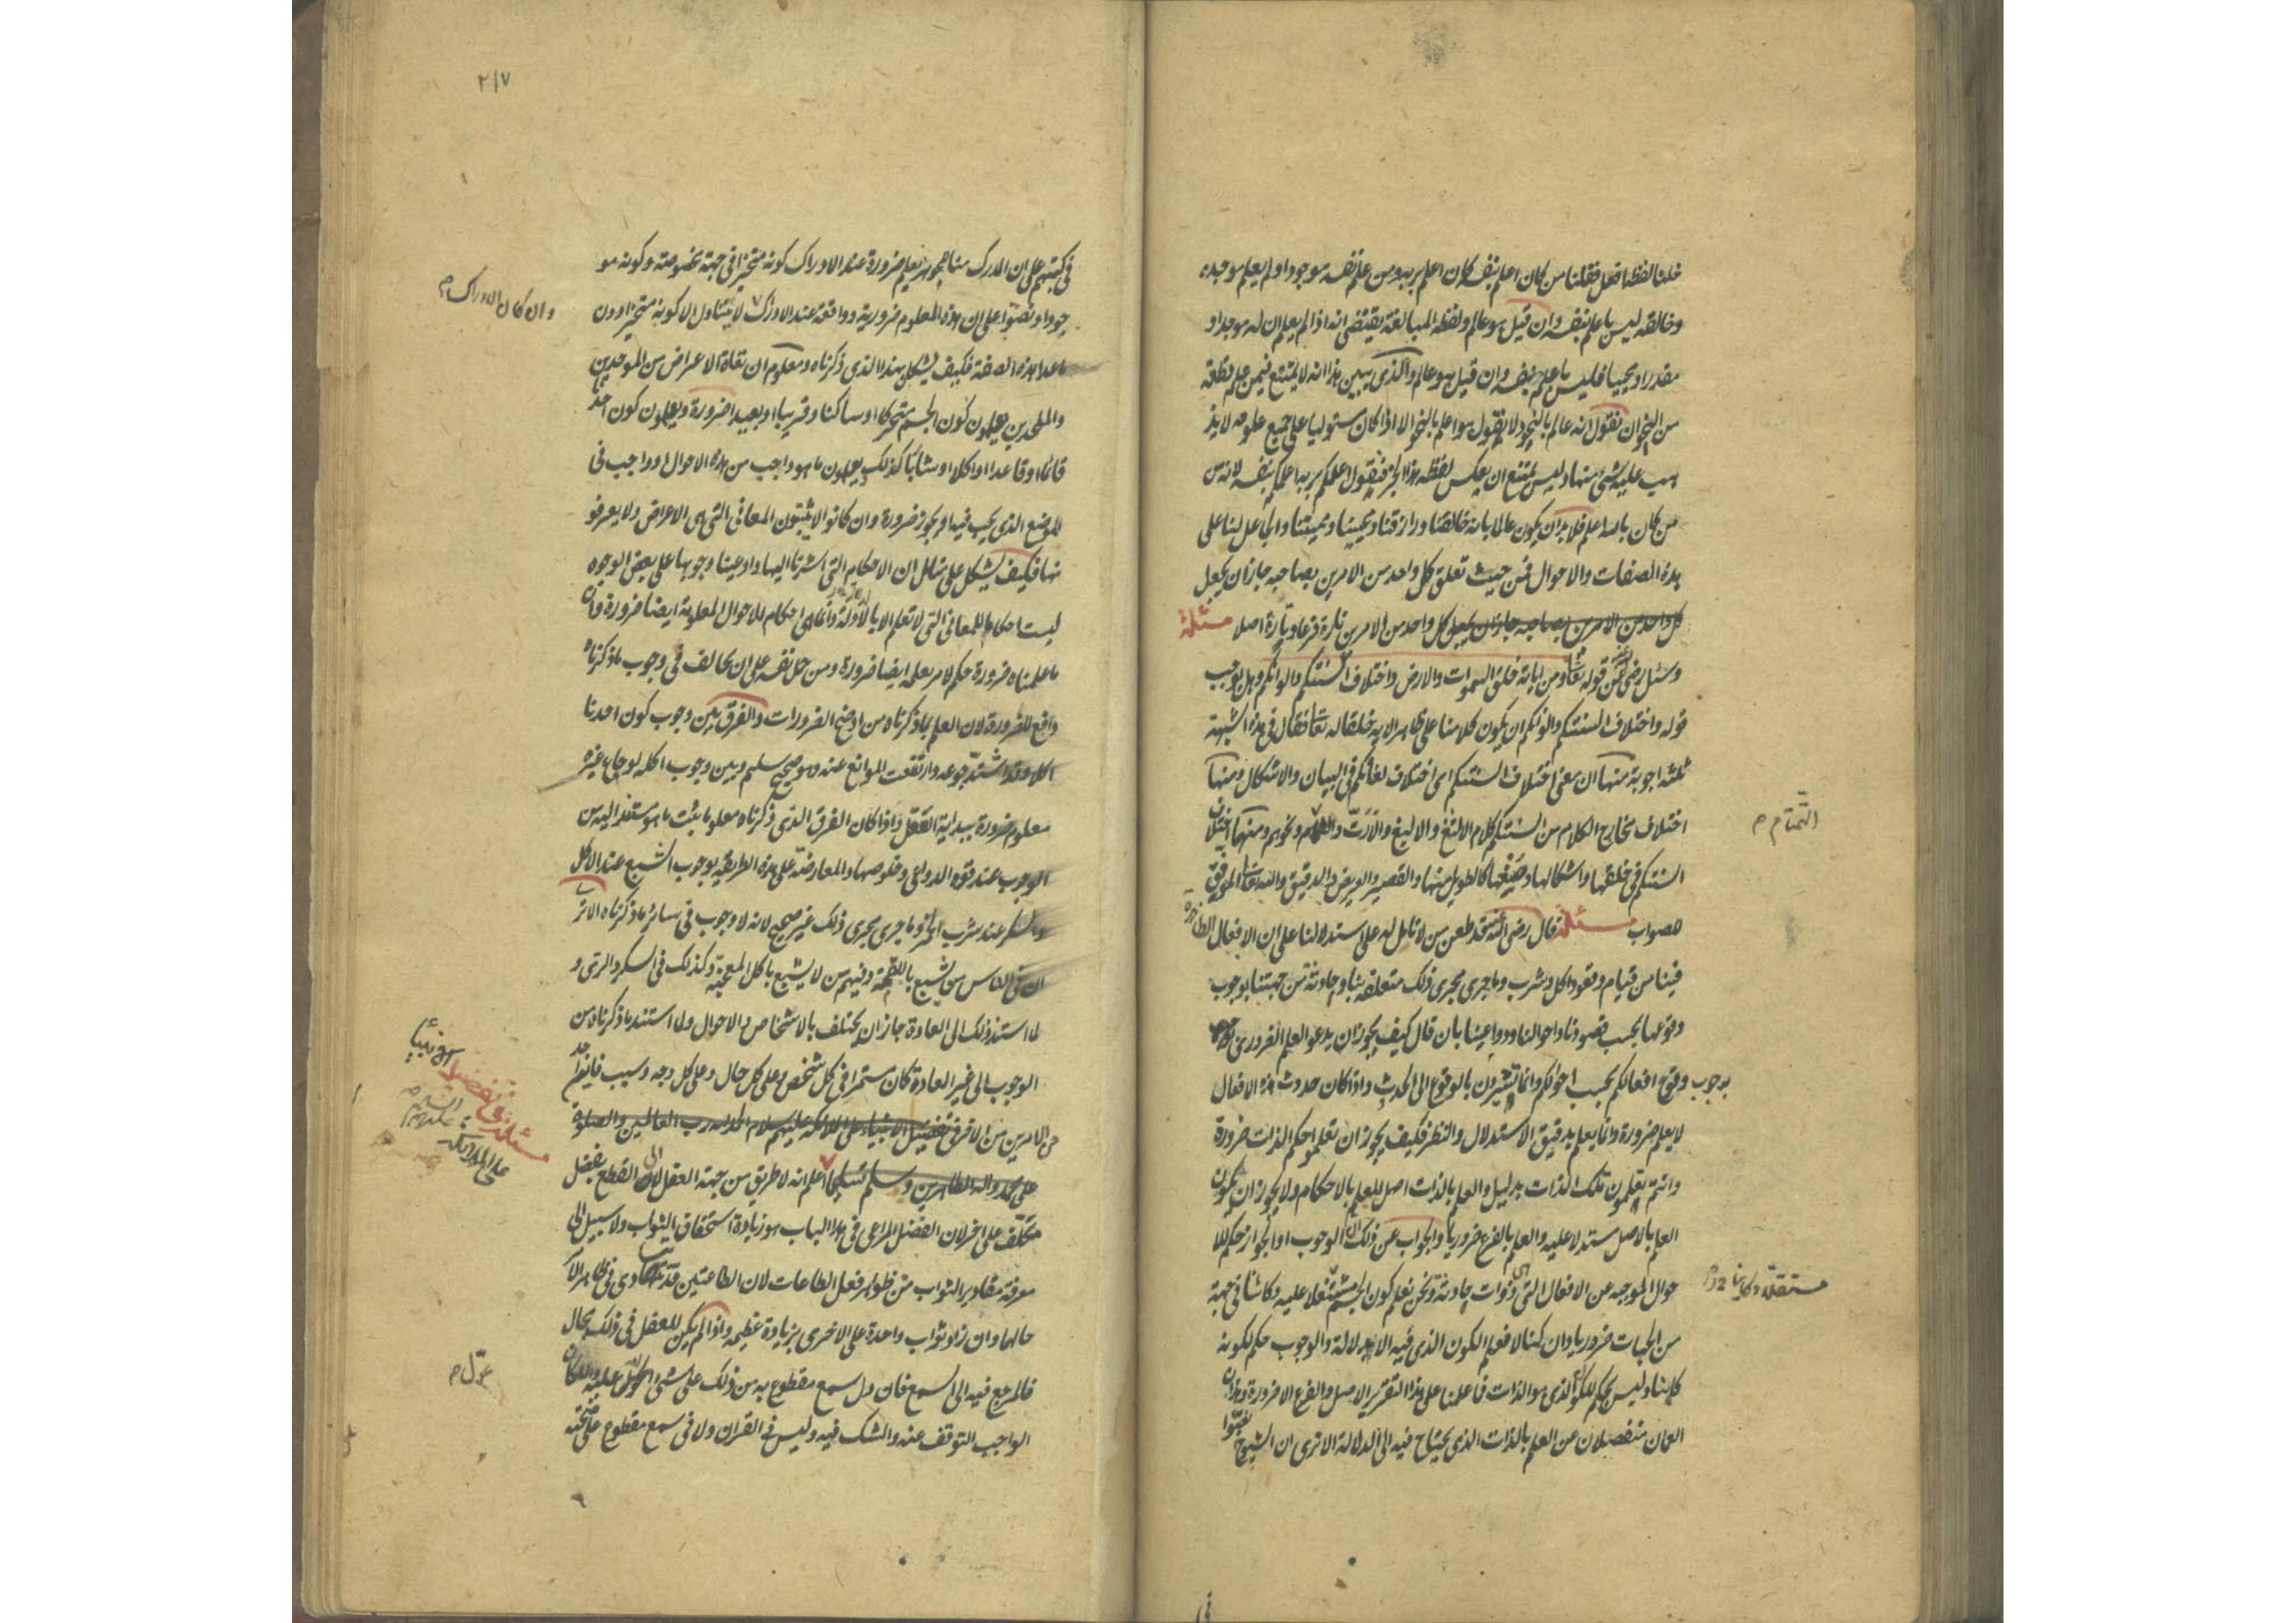 خلنا لفظة افعل فقلنا من كان اعلم بنفسه كان اعلم بربه ومن علم نفسه موجودا ولم يعلم موجده
وخالقه ليس باعلم بنفسه وان قيل هو عالم ولفظه المبالغة يقتضى انه اذا لم يعلم ان له موجدا و
مقدرا ومحييا فليس باعلم بنفسه وان قيل هو عالم والذى يبين هذا انه لا يمتنع فيمن علم قطعة
من النحو ان نقول انه عالم بالنحو ولا نقول هو اعلم بالنحو الا اذا كان مستوليا على جميع علومه لا يذ
هب عليه شئ منها وليس يمتنع ان يعكس لفظه هذا الخبر فيقول اعلمكم بربه اعلمكم بنفسه لانه من
من كان بالله اعلم فلا بد ان يكون عالما بانه خالقنا ورازقنا ومحيينا ومميتنا والجاعل لنا على
هذه الصفات والاحوال فمن حيث تعلق كل واحد من الامرين بصاحبه جاز ان يجعل
كل واحد من الامرين بصاحبه جاز ان يجعل كل واحد من الامرين تارة فرعا وتارة اصلا مسئلة
وسئل رضى الله عنه عن قوله تعالى ومن اياته خلق السموات والارض واختلاف السنتكم والوانكم وهل يوجب
قوله واختلاف السنتكم والوانكم ان يكون كلامنا على ظاهر الاية خلقا له تعالى فقال فى هذه الشبهة
ثلثه اجوبة منها ان معنى اختلاف السنتكم اى اختلاف لغاتكم فى البيان والاشكال ومنها
اختلاف مخارج الكلام من السنتكم ككلام الالثغ والاليغ والارت ونحوهم ومنها اختلاف
التمتام م
السنتكم فى خلقتها واشكالها وصيغتها كالطويل منها والقصير والعريض والدقيق والله تعالى الموفق
للصواب مسئلة قال رضى الله عنه قد طعن من لا تامل له على استدلالنا على ان الافعال الظاهرة
فينا من قيام وقعود واكل وشرب وما جرى مجرى ذلك متعلقة بنا وحادثة من جهتنا بوجوب
وقوعها بحسب قصودنا واحوالنا ودواعينا بان قال كيف يجوز ان يدعو العلم الضرورى
بوجوب وقوع افعالكم بحسب احوالكم وانما تشيرون بالوقوع الى الحدوث واذا كان حدوث هذه الافعال
لا يعلم ضرورة وانما يعلم بدقيق الاستدلال والنظر فكيف يجوز ان تعلموا حكم الذات ضرورة
وانتم تعلمون تلك الذات بدليل والعلم بالذات اصل للعلم بالاحكام ولا يجوز ان يكون
العلم بالاصل مستدلا عليه والعلم بالفرع ضروريا والجواب عن ذلك ان الوجوب او الجواز حكم للا
حوال الموجبه عن الافعال التى هى ذوات حادثة ونحن نعلم كون الجسم منتقلا عليه وكائنا فى جهة
من الجهات ضروريا وان كنا لا نعلم الكون الذى فيه الا بدلالة والوجوب حكم لكونه
كاينا وليس بحكم للكون الذى هو الذات فما علمنا على هذا التقرير الاصل والفرع الا ضرورة وهذان
العلمان منفصلان عن العلم بالذات الذى يحتاج فيه الى الدلالة الا ترى ان الشيوخ نصوا
فى
٢١٧
فى كتبهم على ان المدرك منا للجوهر يعلم ضرورة عند الادراك كونه متحيزا فى جهة مخصوصة وكونه مو
جودا ونصوا على ان هذه المعلوم ضرورية وواقعة عند الادراك لا يتناول الا كونه متحيزا دون
وان كان الادراك م
ما عدا هذه الصفة فكيف يشكل هذا الذى ذكرناه ومعلوم ان نفاة الاعراض من الموحدين
والملحدين يعلمون كون الجسم متحركا او ساكنا وقريبا او بعيدا ضرورة ويعلمون كون احدنا
قائما او قاعدا او اكلا او شاربا كذلك يعلمون ما هو واجب من هذه الاحوال وواجب فى
الموضع الذى يجب فيه او يجوز ضرورة وان كانوا لا يثبتون المعانى التى هى الاعراض ولا يعرفو
نها فكيف يشكل على متامل ان الاحكام التى اشرنا اليها وادعينا وجوبها على بعض الوجوه
ليست احكاما للمعانى التى لا تعلم الا بالادلة وانما هى احكام للاحوال المعلومة ايضا ضرورة وان
ما علمناه ضرورة حكم لامر يعلمه ايضا ضرورة ومن حمل نفسه على ان يخالف فى وجوب ما ذكرناه
دافع للضرورة لان العلم بما ذكرناه من اوضح الضرورات والفرق بين وجوب كون احدنا
اكلا وقد اشتد جوعه وارتفعت الموانع عنه وهو صحيح سليم وبين وجوب اكله لوجاع غيره
معلوم ضرورة ببداية العقل واذا كان الفرق الذى ذكرناه معلوما ثبت ما هو مستند اليه من
الوجوب عند قوة الدواعى وخلوصها والمعارضة على هذه الطريقه بوجوب الشبع عند الاكل
والسكر عند شرب الخمر وما جرى مجرى ذلك غير صحيح لانه لا وجوب فى سائر ما ذكرناه الا ترى
ان فى الناس من يشبع باللقمة وفيهم من لا يشبع باكل وكذلك فى السكر والرى و
لما استند ذلك الى العادة جاز ان يختلف بالاشخاص والاحوال ولما استند ما ذكرناه من
الوجوب الى غير العادة كان مستمرا فى كل شخص وعلى كل حال وعلى كل وجه وسبب فاين احد
مسئلة فى تفضيل الانبياء على الملائكة
من الامرين من الاخر فى تفضيل الانبياء على الملائكة عليهم السلام الحمد لله رب العالمين والصلوة
على محمد واله الطاهرين وسلم تسليما اعلم انه لا طريق من جهة العقل الى القطع بفضل
مكلف على اخر لان الفضل المراعى فى هذا الباب هو زيادة استحقاق الثواب ولا سبيل الى
معرفة مقادير الثواب من ظواهر فعل الطاعات لان الطاعتين قد تتساوى فى ظاهر الا
حالهما وان زاد ثواب واحدة على الاخرى بزيادة عظيمه واذا لم يكن للعقل فى ذلك مجال
فالمرجع فيه الى السمع فان دل سمع مقطوع به من ذلك على شئ عول عليه والا كان
عول م
الواجب التوقف عنه والشك فيه وليس فى القران ولا فى سمع مقطوع على صحته